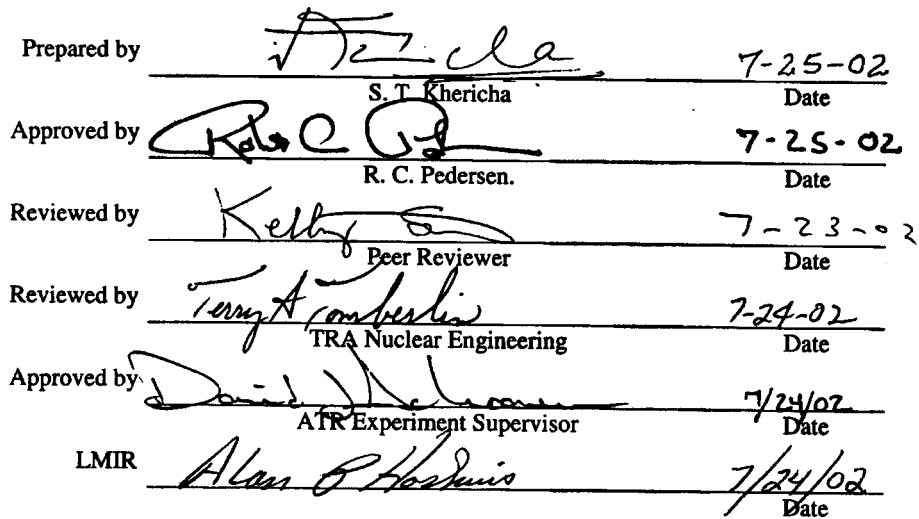 Prepared by 7-25-02
S. T. Khericha Date
Approved by 7-25-02
R. C. Pedersen. Date
Reviewed by Kelly 7-23-02
Peer Reviewer Date
Reviewed by Terry A Tomberlin 7-24-02
TRA Nuclear Engineering Date
Approved by David 7/24/02
ATR Experiment Supervisor Date
LMIR Alan B Hoskins 7/24/02
Date